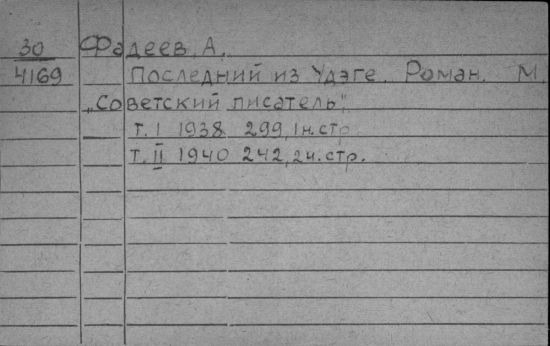 30 Фадеев, А.
4169 Последний из Удэге. Роман. М.
„Советский писатель".
т. I 1938 299, 1 н. стр.
т. II 1940 242, 2 н. стр.